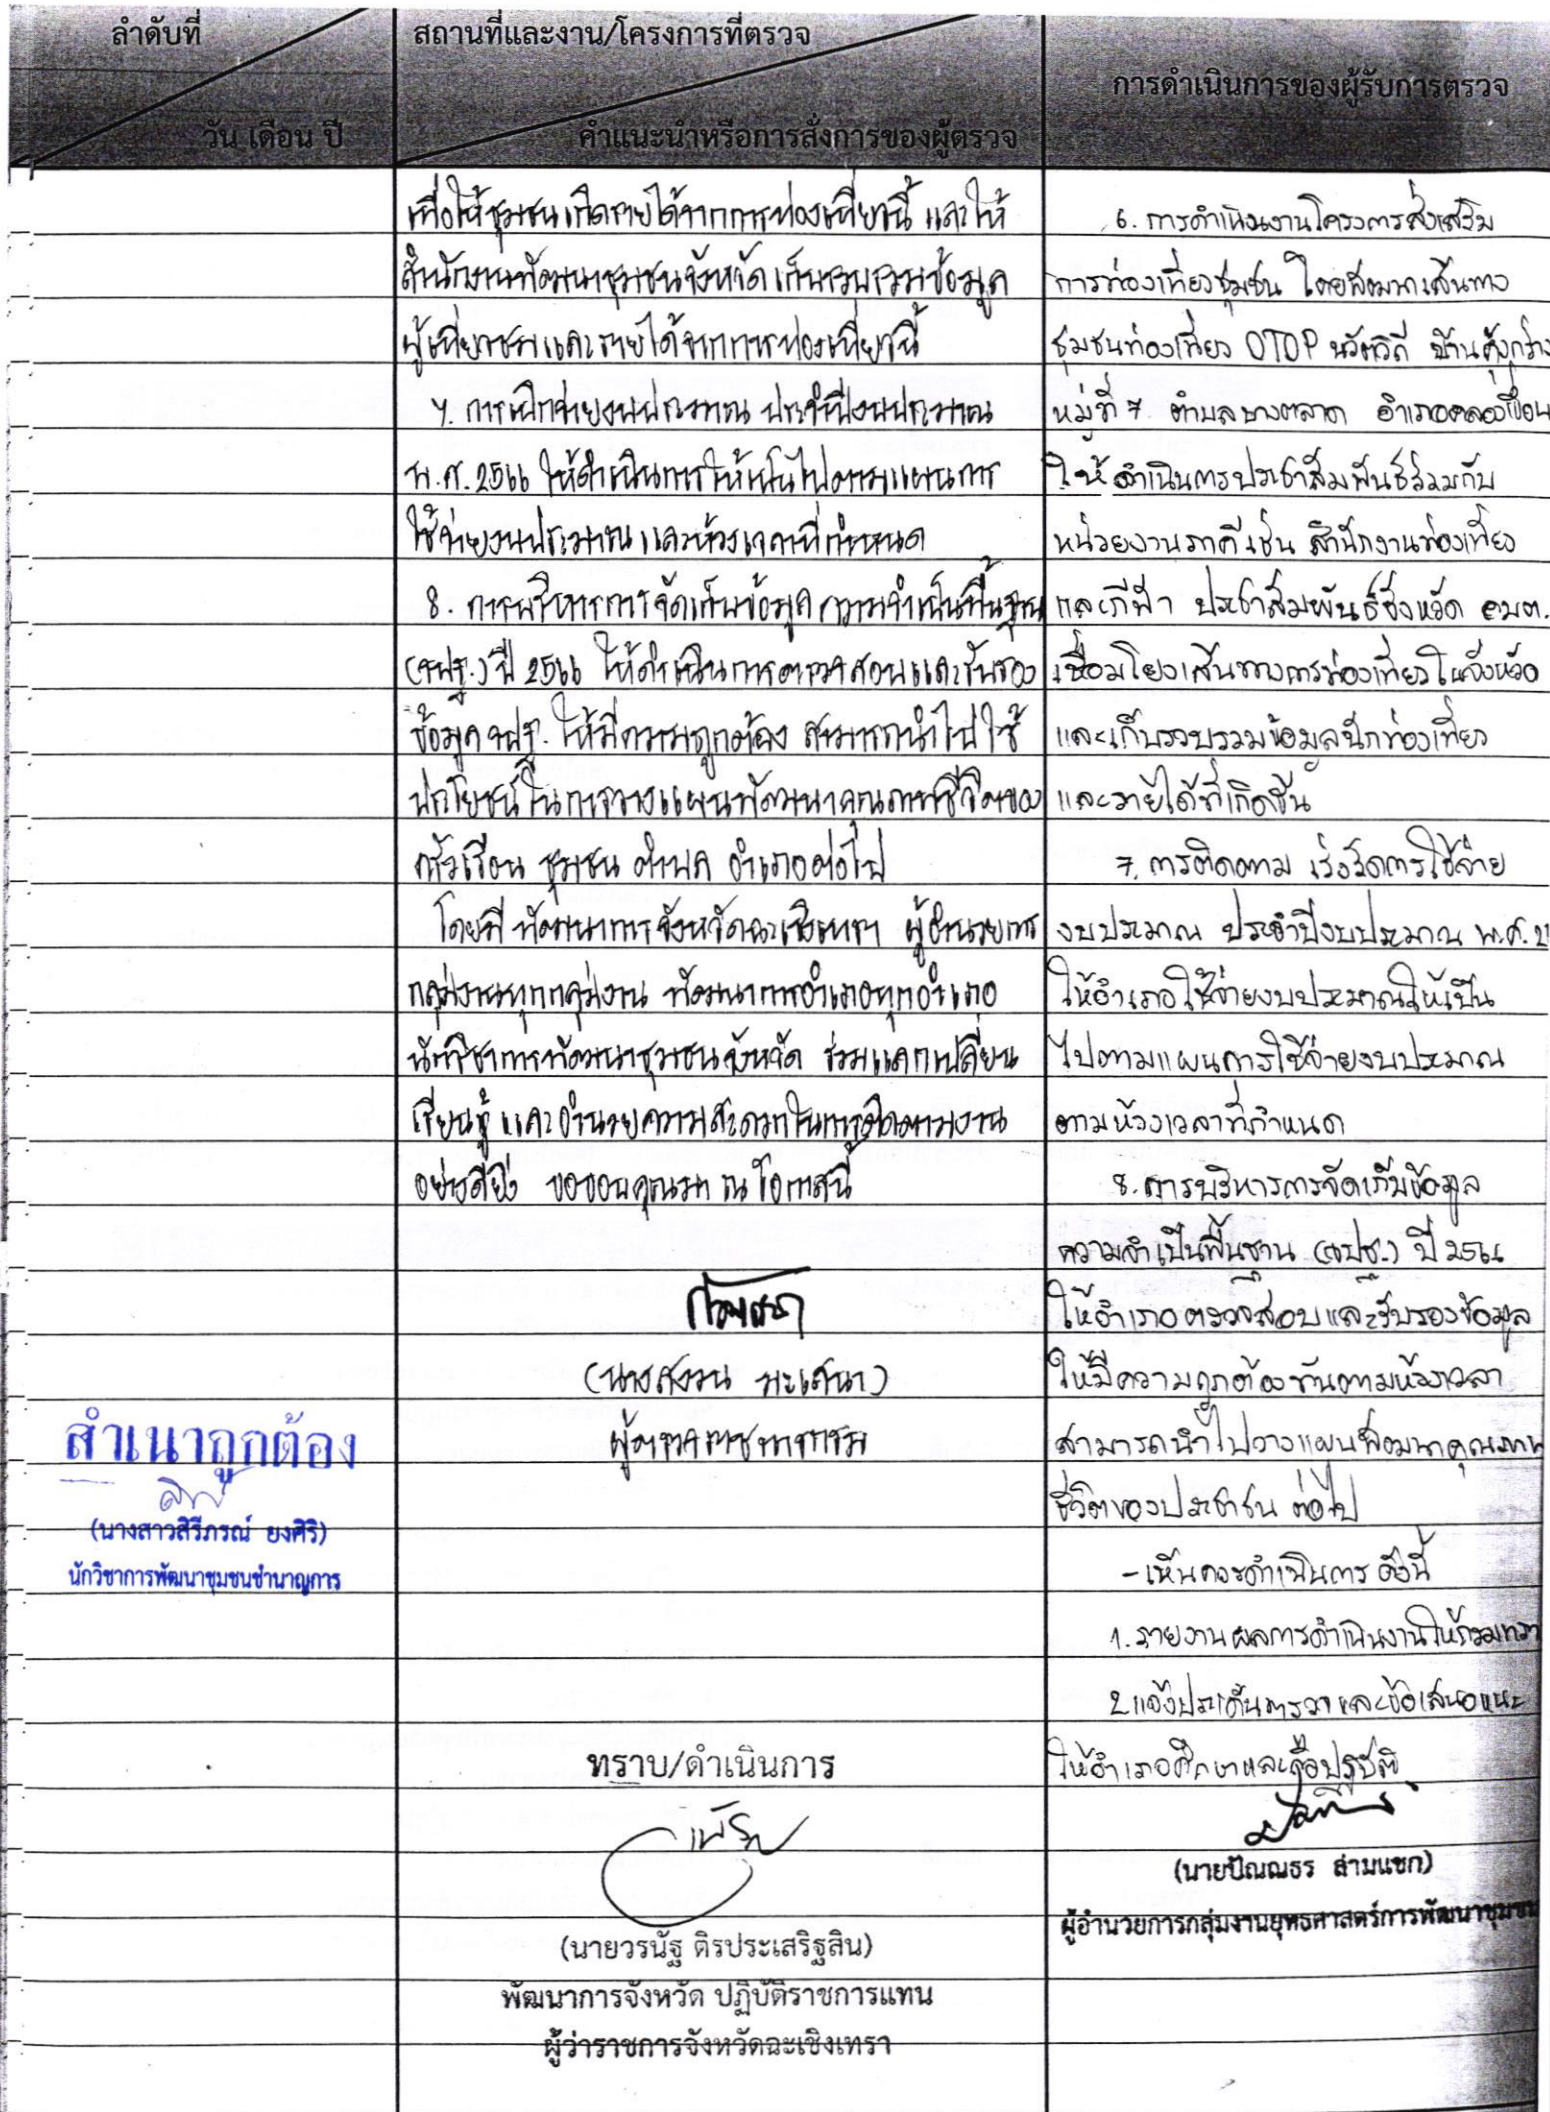 ลำดับที่
วัน เดือน ปี
สถานที่และงาน/โครงการที่ตรวจ
คำแนะนำหรือการสั่งการของผู้ตรวจ
การดำเนินการของผู้รับการตรวจ
เพื่อให้ชุมชนเกิดรายได้จากการท่องเที่ยวนี้ และให้
สำนักงานพัฒนาชุมชนจังหวัด เก็บรวบรวมข้อมูล
ผู้เที่ยวชมและรายได้จากการท่องเที่ยวนี้
7. การเบิกจ่ายงบประมาณ ประจำปีงบประมาณ
พ.ศ. 2566 ให้ดำเนินการให้เป็นไปตามแผนการ
ใช้จ่ายงบประมาณ และห้วงเวลาที่กำหนด
8. การบริหารการจัดเก็บข้อมูลความจำเป็นพื้นฐาน
(จปฐ.) ปี 2566 ให้ดำเนินการตรวจสอบและรับรอง
ข้อมูล จปฐ. ให้มีความถูกต้อง สามารถนำไปใช้
ประโยชน์ในการวางแผนพัฒนาคุณภาพชีวิตของ
ครัวเรือน ชุมชน ตำบล อำเภอต่อไป
โดยมี พัฒนาการจังหวัดฉะเชิงเทรา ผู้อำนวยการ
กลุ่มงานทุกกลุ่มงาน พัฒนาการอำเภอทุกอำเภอ
นักวิชาการพัฒนาชุมชนจังหวัด ร่วมแลกเปลี่ยน
เรียนรู้ และอำนวยความสะดวกในการติดตามงาน
อย่างดียิ่ง ขอขอบคุณมา ณ โอกาสนี้
(นางสงวน มะเสนา)
ผู้ตรวจราชการกรม
ทราบ/ดำเนินการ
(นายวรนัฐ ติรประเสริฐสิน)
พัฒนาการจังหวัด ปฏิบัติราชการแทน
ผู้ว่าราชการจังหวัดฉะเชิงเทรา
6. การดำเนินงานโครงการส่งเสริม
การท่องเที่ยวชุมชน โดยพัฒนาเส้นทาง
ชุมชนท่องเที่ยว OTOP นวัตวิถี บ้าน
หมู่ที่ 7 ตำบลบางตลาด อำเภอคลองเขื่อน
ให้ดำเนินการประชาสัมพันธ์ร่วมกับ
หน่วยงานภาคี เช่น สำนักงานท่องเที่ยว
และกีฬา ประชาสัมพันธ์จังหวัด อบต.
เชื่อมโยงเส้นทางการท่องเที่ยวในจังหวัด
และเก็บรวบรวมข้อมูลนักท่องเที่ยว
และรายได้ที่เกิดขึ้น
7. การติดตาม เร่งรัดการใช้จ่าย
งบประมาณ ประจำปีงบประมาณ พ.ศ. 2
ให้อำเภอใช้จ่ายงบประมาณให้เป็น
ไปตามแผนการใช้จ่ายงบประมาณ
ตามห้วงเวลาที่กำหนด
8. การบริหารการจัดเก็บข้อมูล
ความจำเป็นพื้นฐาน (จปฐ.) ปี 2566
ให้อำเภอตรวจสอบและรับรองข้อมูล
ให้มีความถูกต้อง ทันตามห้วงเวลา
สามารถนำไปวางแผนพัฒนาคุณภาพ
ชีวิตของประชาชน ต่อไป
- เห็นควรดำเนินการ ดังนี้
1. รายงานผลการดำเนินงานให้กรมทราบ
2. แจ้งประเด็นตรวจ และข้อเสนอแนะ
ให้อำเภอศึกษาและถือปฏิบัติ
(นายปัณณธร ล่ามแขก)
ผู้อำนวยการกลุ่มงานยุทธศาสตร์การพัฒนาชุมชน
สำเนาถูกต้อง
(นางสาวสิรีภรณ์ ยงศิริ)
นักวิชาการพัฒนาชุมชนชำนาญการ